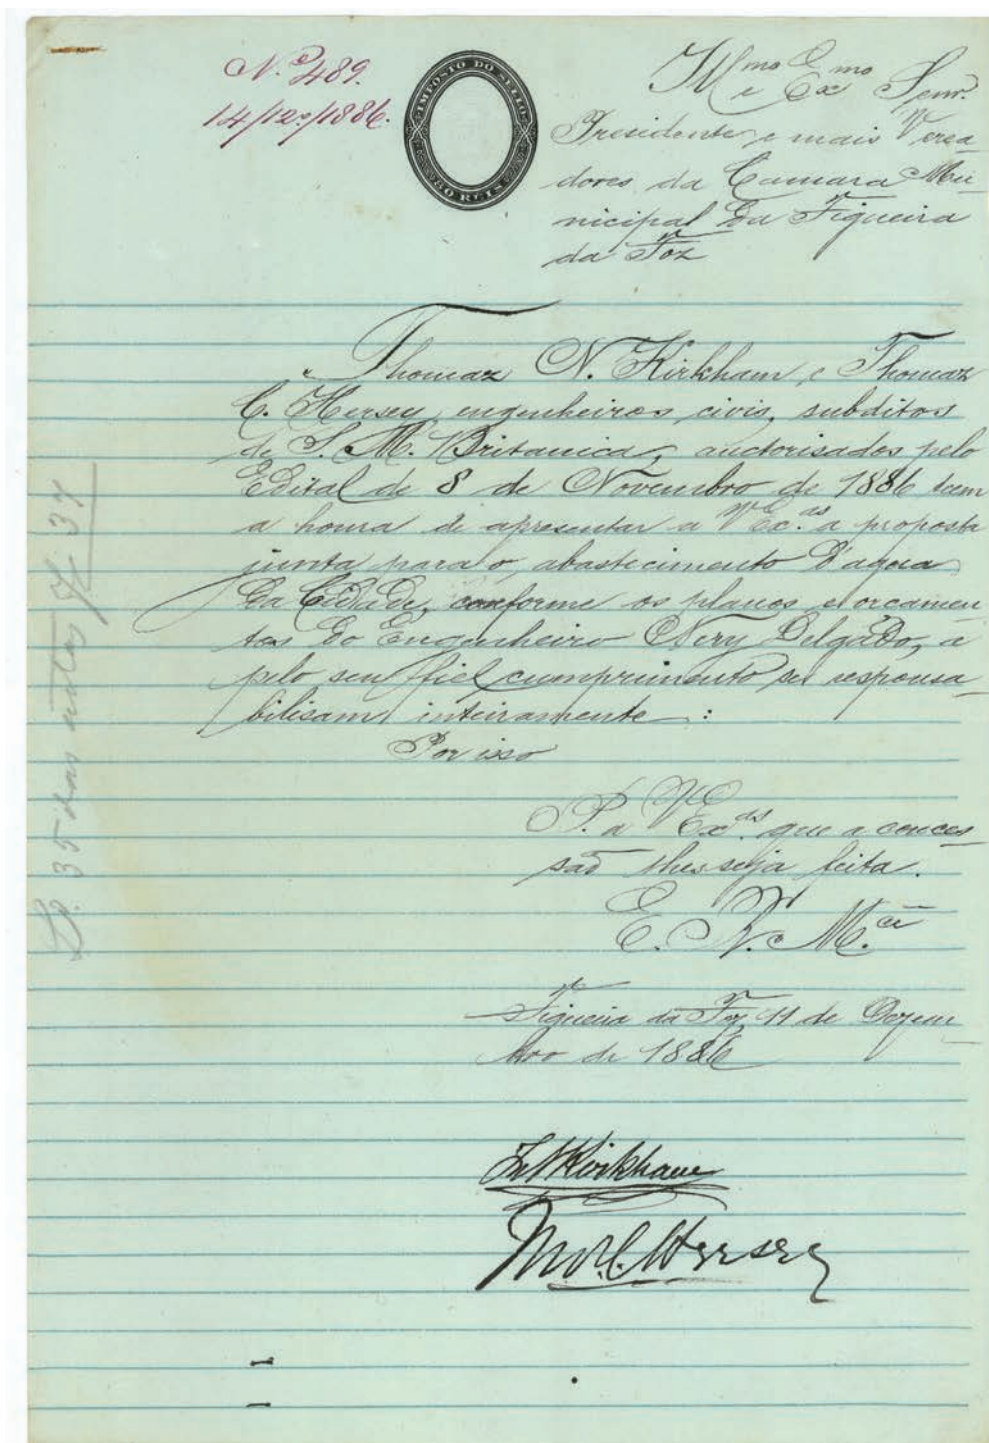 N.º 489.
14/12º/1886.
IMPOSTO DO SELLO
80 REIS
Illmo e Exmo Senr.
Presidente, e mais Verea-
dores da Camara Mu-
nicipal Da Figueira
da Foz
Thomaz N. Kirkham, e Thomaz
C. Hersey, engenheiros civis, subditos
de S. M. Britanica, auctorisados pelo
Edital de 8 de Novembro de 1886 teem
a honra de apresentar a V Ex.as a proposta
junta para o abastecimento D'agua
Da Cidade, conforme os planos e orcamen-
tos Do Engenheiro Nery Delgado, a
pelo seu fiel cumprimento se responsa-
bilisam inteiramente :
Por isso
P. a V Ex.as que a conces-
saõ lhes seja feita.
E. R. Mce
Figueira da Foz, 11 de Dezem-
bro de 1886
Kirkham
C Hersey
35 dos autos f. 37